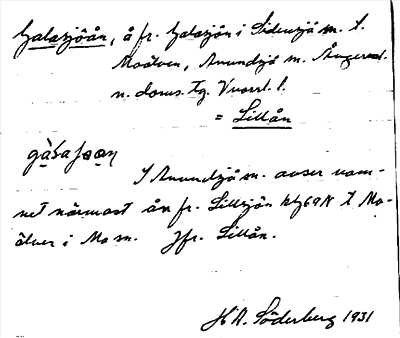 Galasjöån, å fr. Galasjön i Sidensjö sn. t.
Moälven, Anundsjö sn. Ångerml.
n. doms. tg. Vuorrl. l.
= Lillån
gàłasjøan
I Anundsjö sn. avser nam-
net närmast ån fr. Lillsjön kbl 69 N t. Mo-
älven i Mo sn. Jfr. Lillån.
H. A. Söderberg 1931